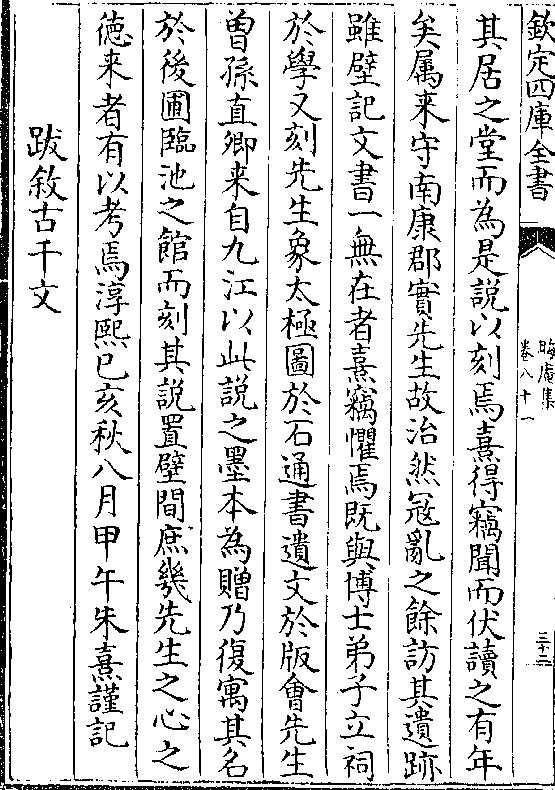 欽定四庫全書
晦庵集
卷八十一
三十二
其居之堂而為是說以刻焉熹得竊聞而伏讀之有年
矣属来守南康郡實先生故治然冦亂之餘訪其遺跡
雖壁記文書一無在者熹竊懼焉既與博士弟子立祠
於學又刻先生象太極圖於石通書遺文於版㑹先生
曽孫直卿来自九江以此說之墨本為贈乃復寓其名
於後圃臨池之館而刻其說置壁間庶幾先生之心之
徳来者有以考焉淳熙己亥秋八月甲午朱熹謹記
跋敘古千文